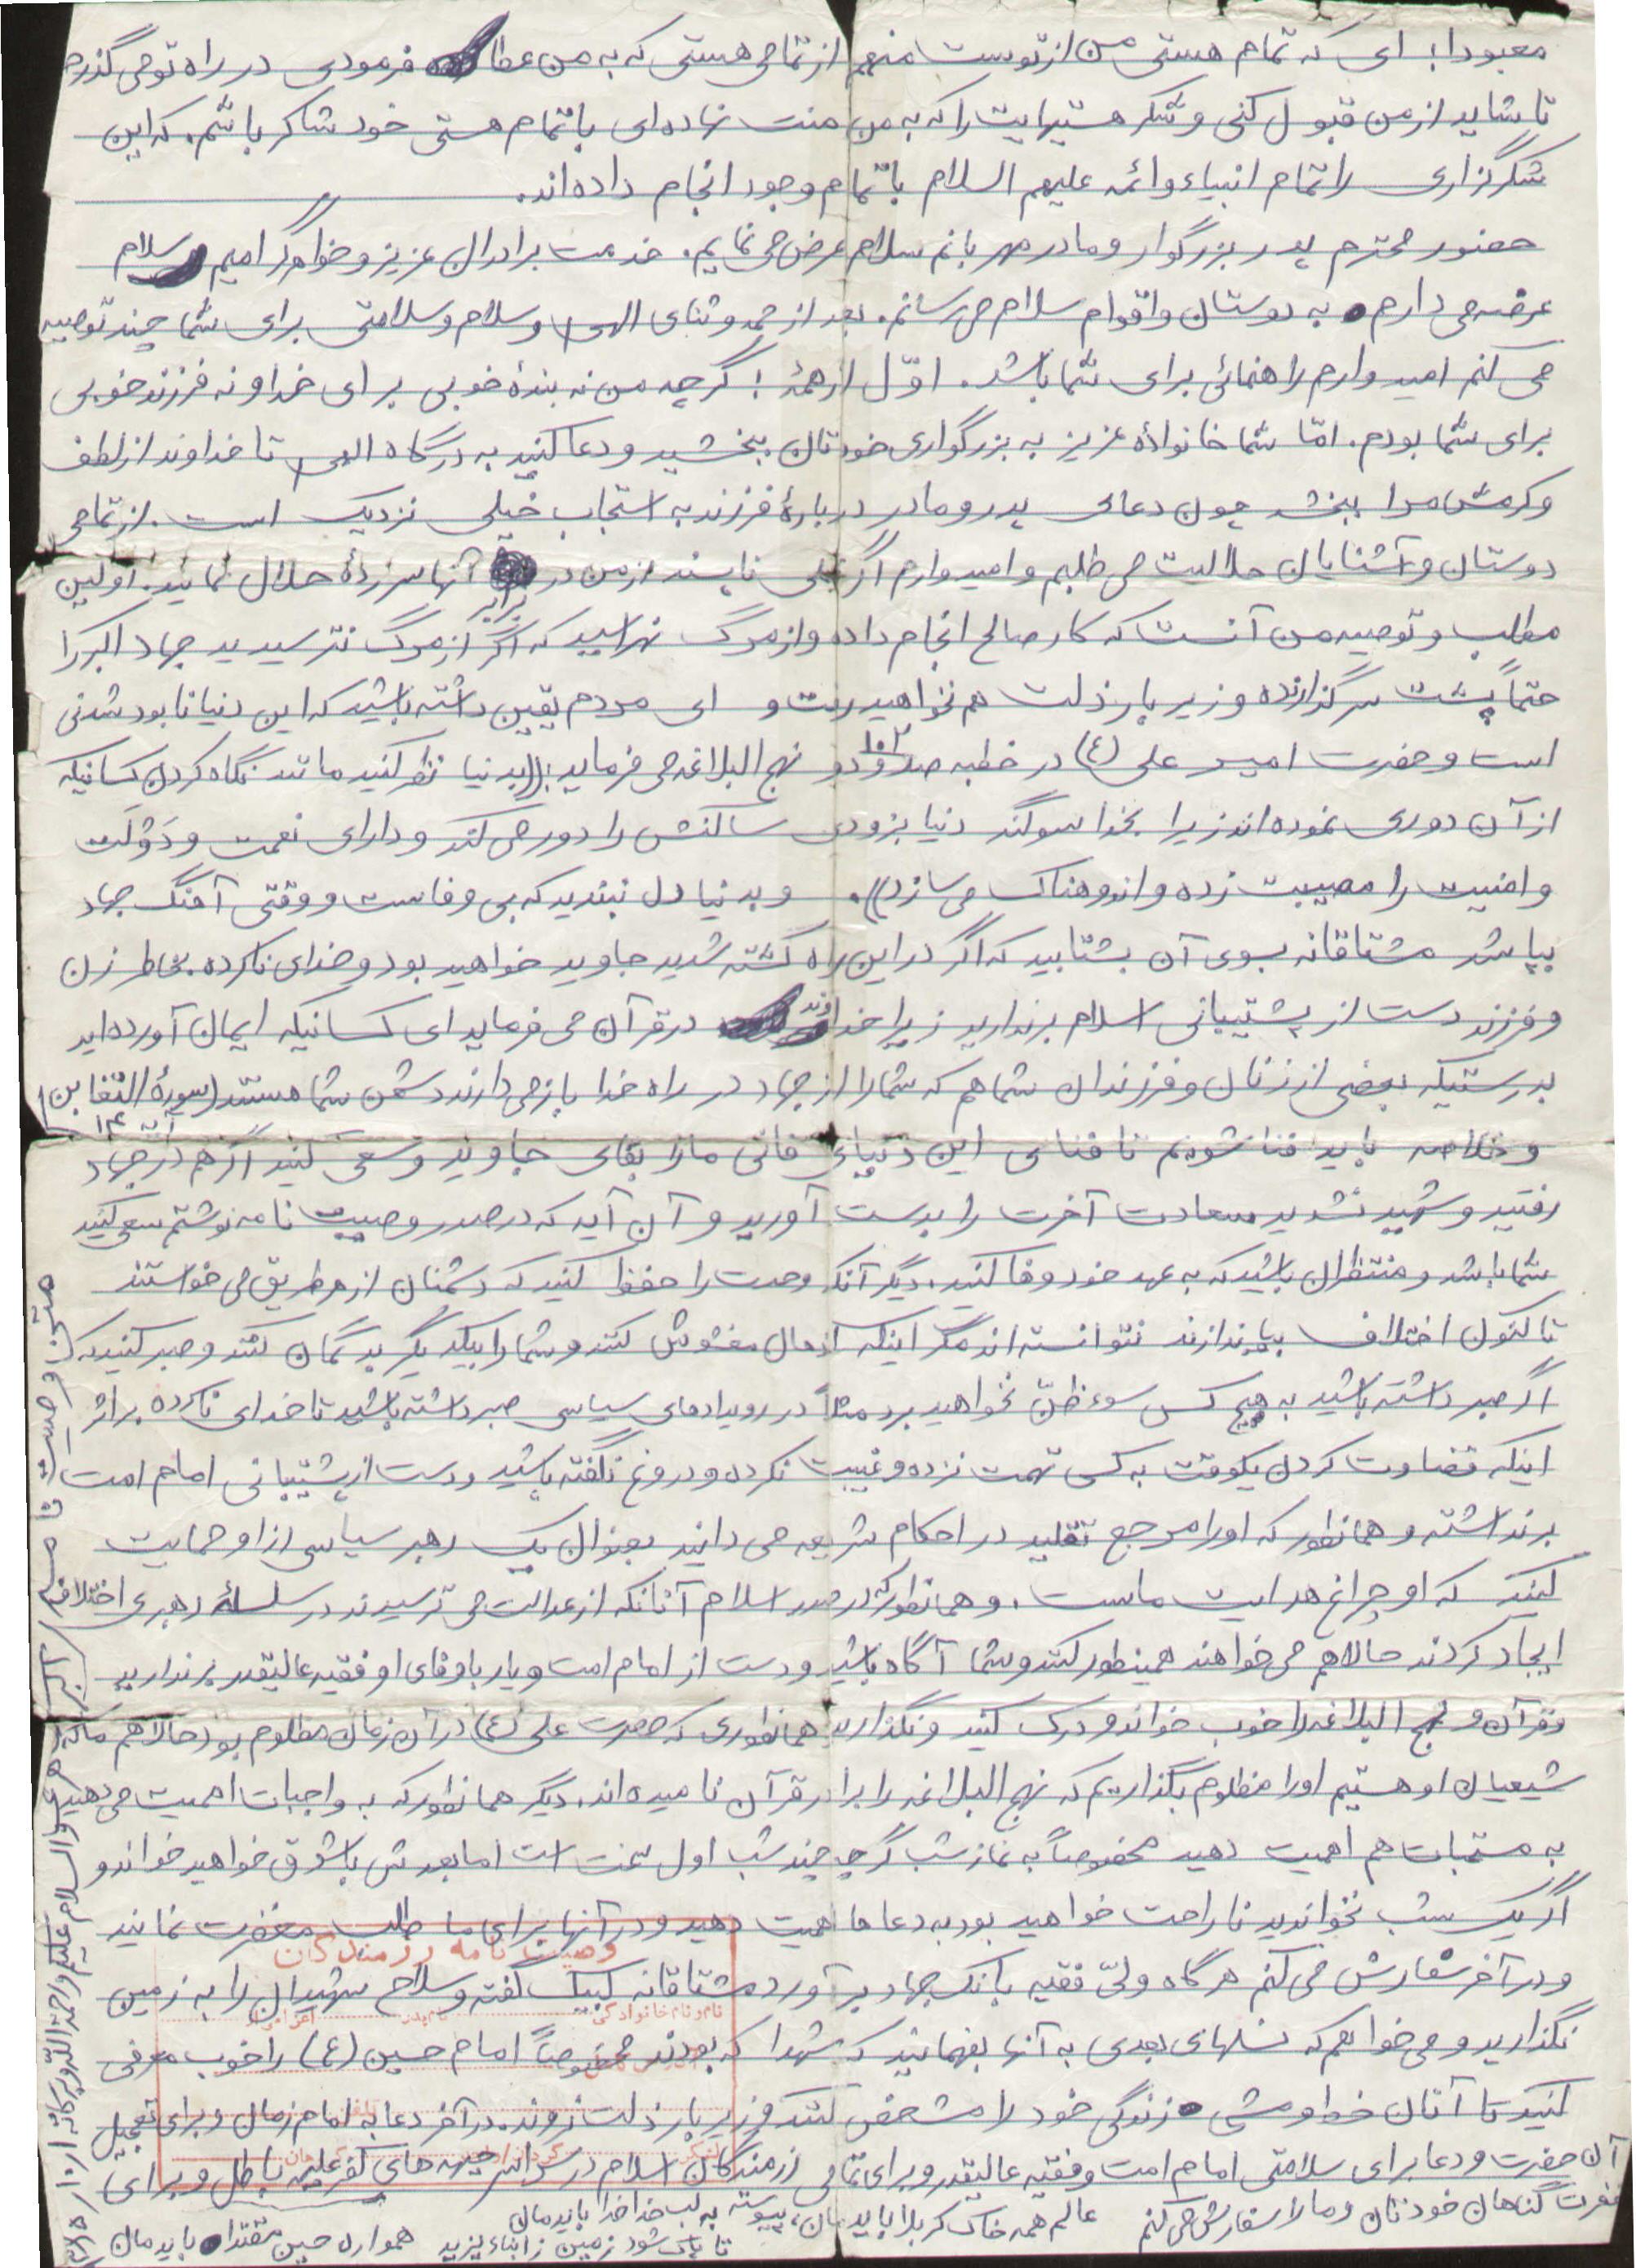 معبودا! ای که تمام هستی من از توست منهم از تمامی هستی که به من عطا فرمودی در راه تو می گذرم
تا شاید از من قبول کنی و شکر هستیهایت را که به من منت نهاده‌ای با تمام هستی خود شاکر باشم. که این
شکرگزاری را تمام انبیاء و ائمه علیهم السلام با تمام وجود انجام داده‌اند.
حضور محترم پدر بزرگوار و مادر مهربانم سلام عرض می نمایم. خدمت برادران عزیز و خواهر گرامیم سلام
عرضه می دارم به دوستان و اقوام سلام می رسانم. بعد از حمد و ثنای الهی و سلام و سلامتی برای شما چند توصیه
می کنم امیدوارم راهنمائی برای شما باشد. اوّل از همه! گرچه من نه بندهٔ خوبی برای خدا و نه فرزند خوبی
برای شما بودم. امّا شما خانوادهٔ عزیز به بزرگواری خودتان بخشید و دعا کنید به درگاه الهی تا خداوند از لطف
و کرمش مرا ببخشد چون دعای پدر و مادر دربارهٔ فرزند به استجاب خیلی نزدیک است. از تمامی
دوستان و آشنایان حلالیت می طلبم و امیدوارم اگر عملی ناپسند از من در برابر آنها سر زده حلال نمائید. اولین
مطلب و توصیه من آنست که کار صالح انجام داده و از مرگ نهراسید که اگر از مرگ نترسیدید جهاد اکبر را
حتماً پشت سر گذارنده و زیر بار ذلت هم نخواهید رفت و ای مردم یقین داشته باشید که این دنیا نابود شدنی
است و حضرت امیر علی (ع) در خطبه صد و دو ۱۰۲ نهج البلاغه می فرماید: ((بدنیا نظر کنید مانند نگاه کردن کسانیکه
از آن دوری نموده‌اند زیرا بخدا سوگند دنیا بزودی ساکنش را دور می کند و دارای نعمت و دَوْلَت
و امنیت را مصیبت زده و اندوهناک می سازد)). و بدنیا دل نبندید که بی وفاست و وقتی آهنگ جهاد
بپا شد مشتاقانه بسوی آن بشتابید که اگر در این راه کشته شدید جاوید خواهید بود و خدای ناکرده بخاطر زن
و فرزند دست از پشتیبانی اسلام برندارید زیرا خداوند در قرآن می فرماید ای کسانیکه ایمان آورده‌اید
بدرستیکه بعضی از زنان و فرزندان شما هم که شما را از جهاد در راه خدا باز می دارند دشمن شما هستند (سورهٔ التغابن آیه ۱۴)
و خلاصه باید فنا شویم تا فنای این دنیای فانی ما را بقای جاوید و سعی کنید اگر هم در جهاد
رفتید و شهید نشدید سعادت آخرت را بدست آورید و آن آیه که در صدر وصیت نامه نوشتم سعی کنید
شما باشد و منتظران باشید که به عهد خود وفا کنید. دیگر آنکه وحدت را حفظ کنید که دشمنان از هر طریق می خواستند
تا کنون اختلاف بیاندازند نتوانسته‌اند مگر اینکه اذهان مغشوش کنند و شما را بیکدیگر بد گمان کنند و صبر کنید که
اگر صبر داشته باشید به هیچ کس سوءظنّ نخواهید برد مثلاً در رویدادهای سیاسی صبر داشته باشید تا خدای ناکرده براثر
اینکه قضاوت کردن یکوقت به کسی تهمت نزده و غیبت نکرده و دروغ نگفته باشید و دست از پشتیبانی امام امت
برنداشته و همانطور که او را مرجع تقلید در احکام شریعه می دانید بعنوان یک رهبر سیاسی از او حمایت
کنید که او چراغ هدایت ماست. و همانطور که در صدر اسلام آنانکه از عدالت می ترسیدند در سلسلهٔ رهبری اختلاف
ایجاد کردند حالا هم می خواهند همینطور کنند و شما آگاه باشید و دست از امام امت و یار باوفای او فقیه عالیقدر برندارید
و قرآن و نهج البلاغه را خوب خوانده و درک کنید و نگذارید همانطوری که حضرت علی (ع) در آن زمان مظلوم بود حالا هم ما که
شیعیان او هستیم او را مظلوم بگذاریم که نهج البلاغه را برادر قرآن نامیده‌اند. دیگر همانطور که به واجبات اهمیت می دهید
به مستحبات هم اهمیت دهید مخصوصاً به نماز شب گرچه چند شب اول سخت است اما بعدش با شوق خواهید خواند و
اگر یک شب نخواندید ناراحت خواهید بود به دعاها اهمیت دهید و در آنها برای ما طلب مغفرت نمائید
وصیت نامه رزمندگان
و در آخر سفارش می کنم هرگاه ولیّ فقیه بانگ جهاد برآورد مشتاقانه لبیک گفته و سلاح شهیدان را به زمین
نام و نام خانوادگی نام پدر اعزام از
نگذارید و می خواهم که نسلهای بعدی به آنها بفهمانید که شهدا که بودند مخصوصاً امام حسین (ع) را خوب معرفی
کنید تا آنان خط و مشی زندگی خود را مشخص کنند و زیر بار ذلت نروند. در آخر دعا به امام زمان و برای تعجیل
آن حضرت و دعا برای سلامتی امام امت و فقیه عالیقدر و برای تمامی رزمندگان اسلام در سراسر جبهه های کفر علیه باطل و برای
لشکر گردان
مغفرت گناهان خودتان و ما را سفارش می کنم
عالم همه خاک کربلا بایدمان، پیوسته به لب خدا خدا بایدمان
تا پاک شود زمین ز ابناء یزید همواره حسین مقتدا بایدمان
متن وصیت نامه
والسلام علیکم و رحمة الله و برکاته